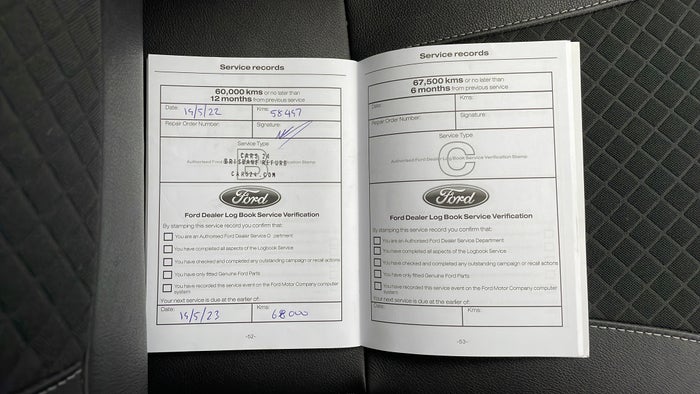 Service records
60,000 kms or no later than
12 months from previous service
Date: 19/5/22 Kms: 58457
Repair Order Number: Signature:
Service Type
B
Authorised Ford
CARS 24
BRISBANE REFURB
CARS24.COM
Ford
Ford Dealer Log Book Service Verification
By stamping this service record you confirm that:
You are an Authorised Ford Dealer Service D partment
You have completed all aspects of the Logbook Service
You have checked and completed any outstanding campaign or recall actions
You have only fitted Genuine Ford Parts
You have recorded this service event on the Ford Motor Company computer
system
Your next service is due at the earlier of:
Date: 19/5/23 Kms: 68000
-52-
Service records
67,500 kms or no later than
6 months from previous service
Date: Kms:
Repair Order Number: Signature:
Service Type
C
Authorised Ford Dealer Log Book Service Verification Stamp
Ford
Ford Dealer Log Book Service Verification
By stamping this service record you confirm that:
You are an Authorised Ford Dealer Service Department
You have completed all aspects of the Logbook Service
You have checked and completed any outstanding campaign or recall actions
You have only fitted Genuine Ford Parts
You have recorded this service event on the Ford Motor Company computer
system
Your next service is due at the earlier of:
Date: Kms:
-53-